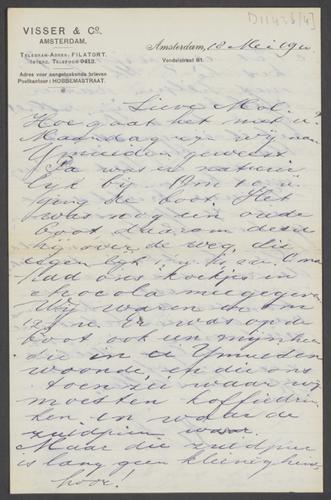 D11438/4
VISSER & Co.
AMSTERDAM.
TELEGRAM-ADRES: FILATORT.
INTERC. TELEFOON 9413.
Adres voor aangeteekende brieven
Postkantoor: HOBBEMASTRAAT.
Amsterdam, 18 Mei 19
Vondelstraat 81.
Lieve Mol.
Hoe gaat het met u?
Maandag zijn wij naar
IJmuiden geweest
Pa was er natuur
lijk bij. Om 10 u.
ging de boot. Het
was nog een oude
boot daarom deed
hij over de weg, die
eigenlijk Oma
had ons koekjes en
chocola meegegeven
Wij waren om
Er was op de
boot ook een mijnheer
die in IJmuiden
woonde, en die ons
toen zei waar wij
moesten koffiedrin
ken en waar de
zuidpier was.
Maar die zuidpier
is lang geen kleinigheid
hoor!